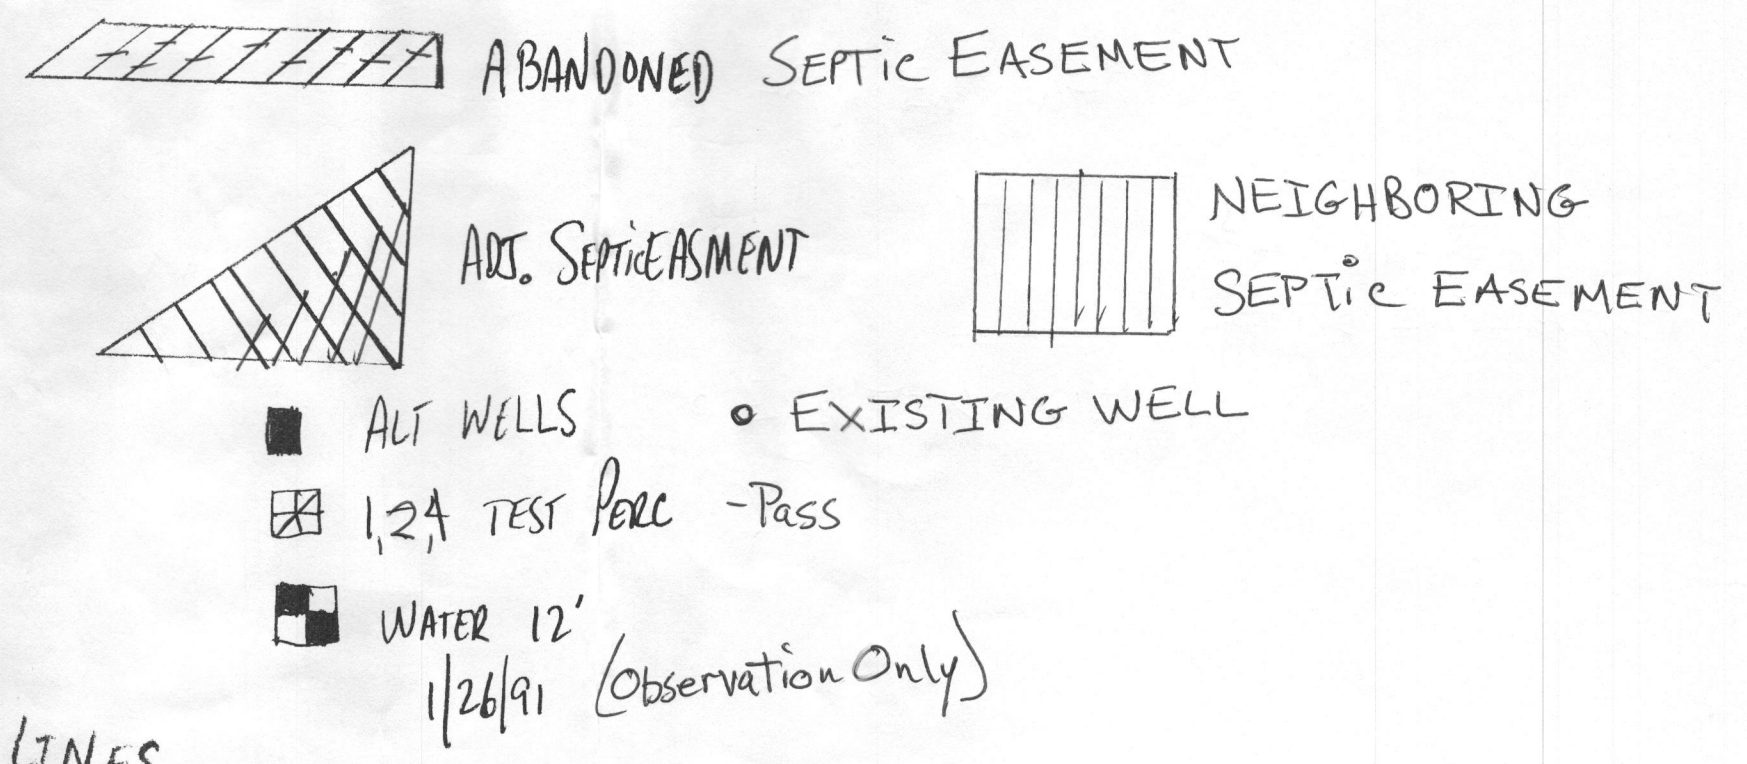 ABANDONED SEPTic EASEMENT
ADJ. SEPTicEASMENT
NEIGHBORING
SEPTic EASEMENT
ALT WELLS
EXISTING WELL
1,2,4 TEST PERC -Pass
WATER 12'
1/26/91 (Observation Only)
LINES